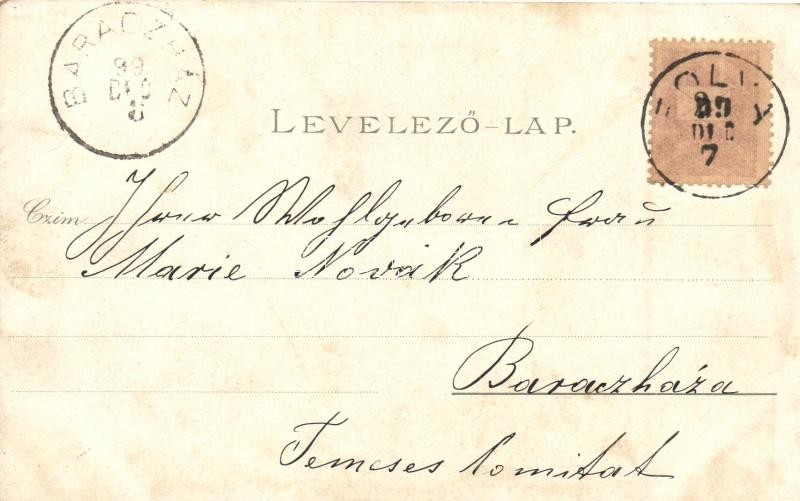 BARACZHÁZ
99
DEC
8
LEVELEZŐ-LAP.
99
DEC
7
Czim Ihrer Wohlgeboren Frau
Marie Novák
Baraczháza
Temeses Comitat